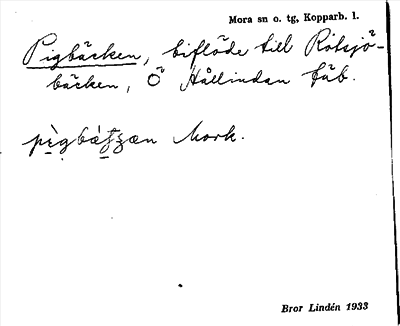 Mora sn o. tg, Kopparb. l.
Pigbäcken, biflöde till Rölsjö-
bäcken, Ö Hållindan fäb.
pìgbætʒæn Mork.
Bror Lindén 1933